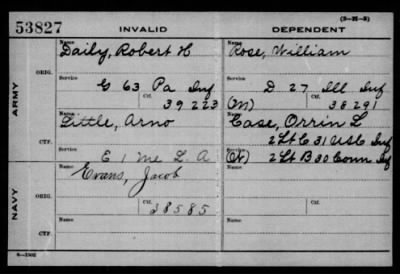 53827
INVALID
DEPENDENT
(3-21-2)
ARMY
NAVY
ORIG.
CTF.
ORIG.
CTF.
Name
Daily, Robert H
Service
G 63 Pa Inf
Ctf.
39223
Name
Little, Arno
Service
E 1 Me L. A
Name
Evans, Jacob
Ctf.
28585
Name
Name
Rose, William
Service
D 27 Ill Inf
(M)
Ctf.
38291
Name
Case, Orrin L
2 Lt C 31 USC Inf
Service
(W) 2 Lt B 30 Conn Inf
Name
Ctf.
Name